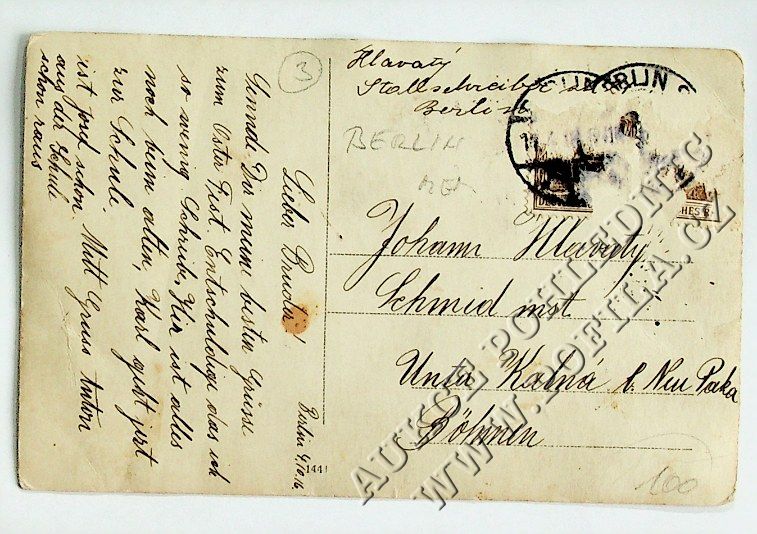 3
Hlavatý
Stallschreiber
Berlin
BERLIN
BERLIN
Johann Hlavatý
Schmid mst
Unter Kalná b. Neu Paka
Böhmen
100
Berlin 9.10.16
Lieber Bruder!
Sende Dir meine besten Grüsse
zum Oster Fest Entschuldige das ich
so wenig Schreibe, Hir ist alles
noch beim alten, Karl geht jezt
zur Schule.
ist fond schon Mitt Gruss Anton
aus der Schule
schon raus
1441
AUKCE POHLEDNIC
WWW.ZOETILA.CZ